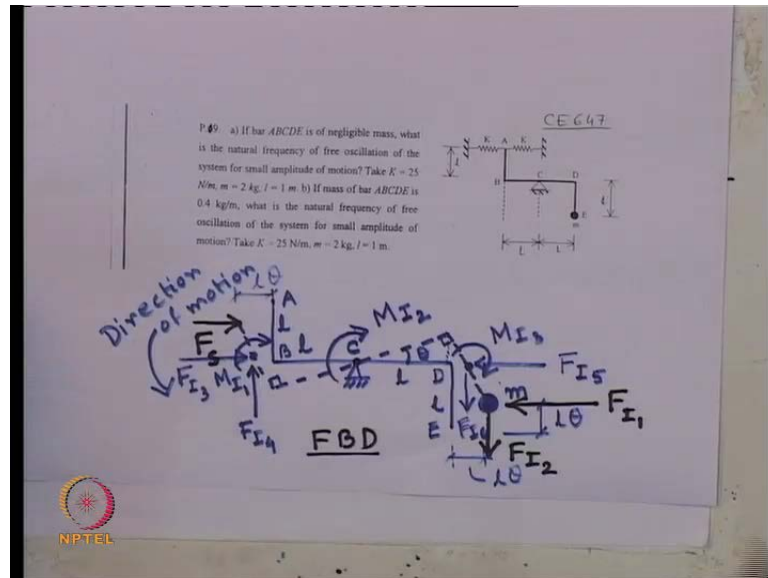 CE647
P.09 a) If bar ABCDE is of negligible mass, what
is the natural frequency of free oscillation of the
system for small amplitude of motion? Take K = 25
N/m, m = 2 kg, l = 1 m. b) If mass of bar ABCDE is
0.4 kg/m, what is the natural frequency of free
oscillation of the system for small amplitude of
motion? Take K = 25 N/m, m = 2 kg, l = 1 m.
K A K
l
B C D
E
m
L
L L
Direction
of motion
lθ
A
l
F_S
F_I3
M_I1
B
l
C
M_I2
θ
l
D
M_I3
F_I5
F_I4
l
E
m
F_I1
lθ
F_I2
lθ
FBD
NPTEL